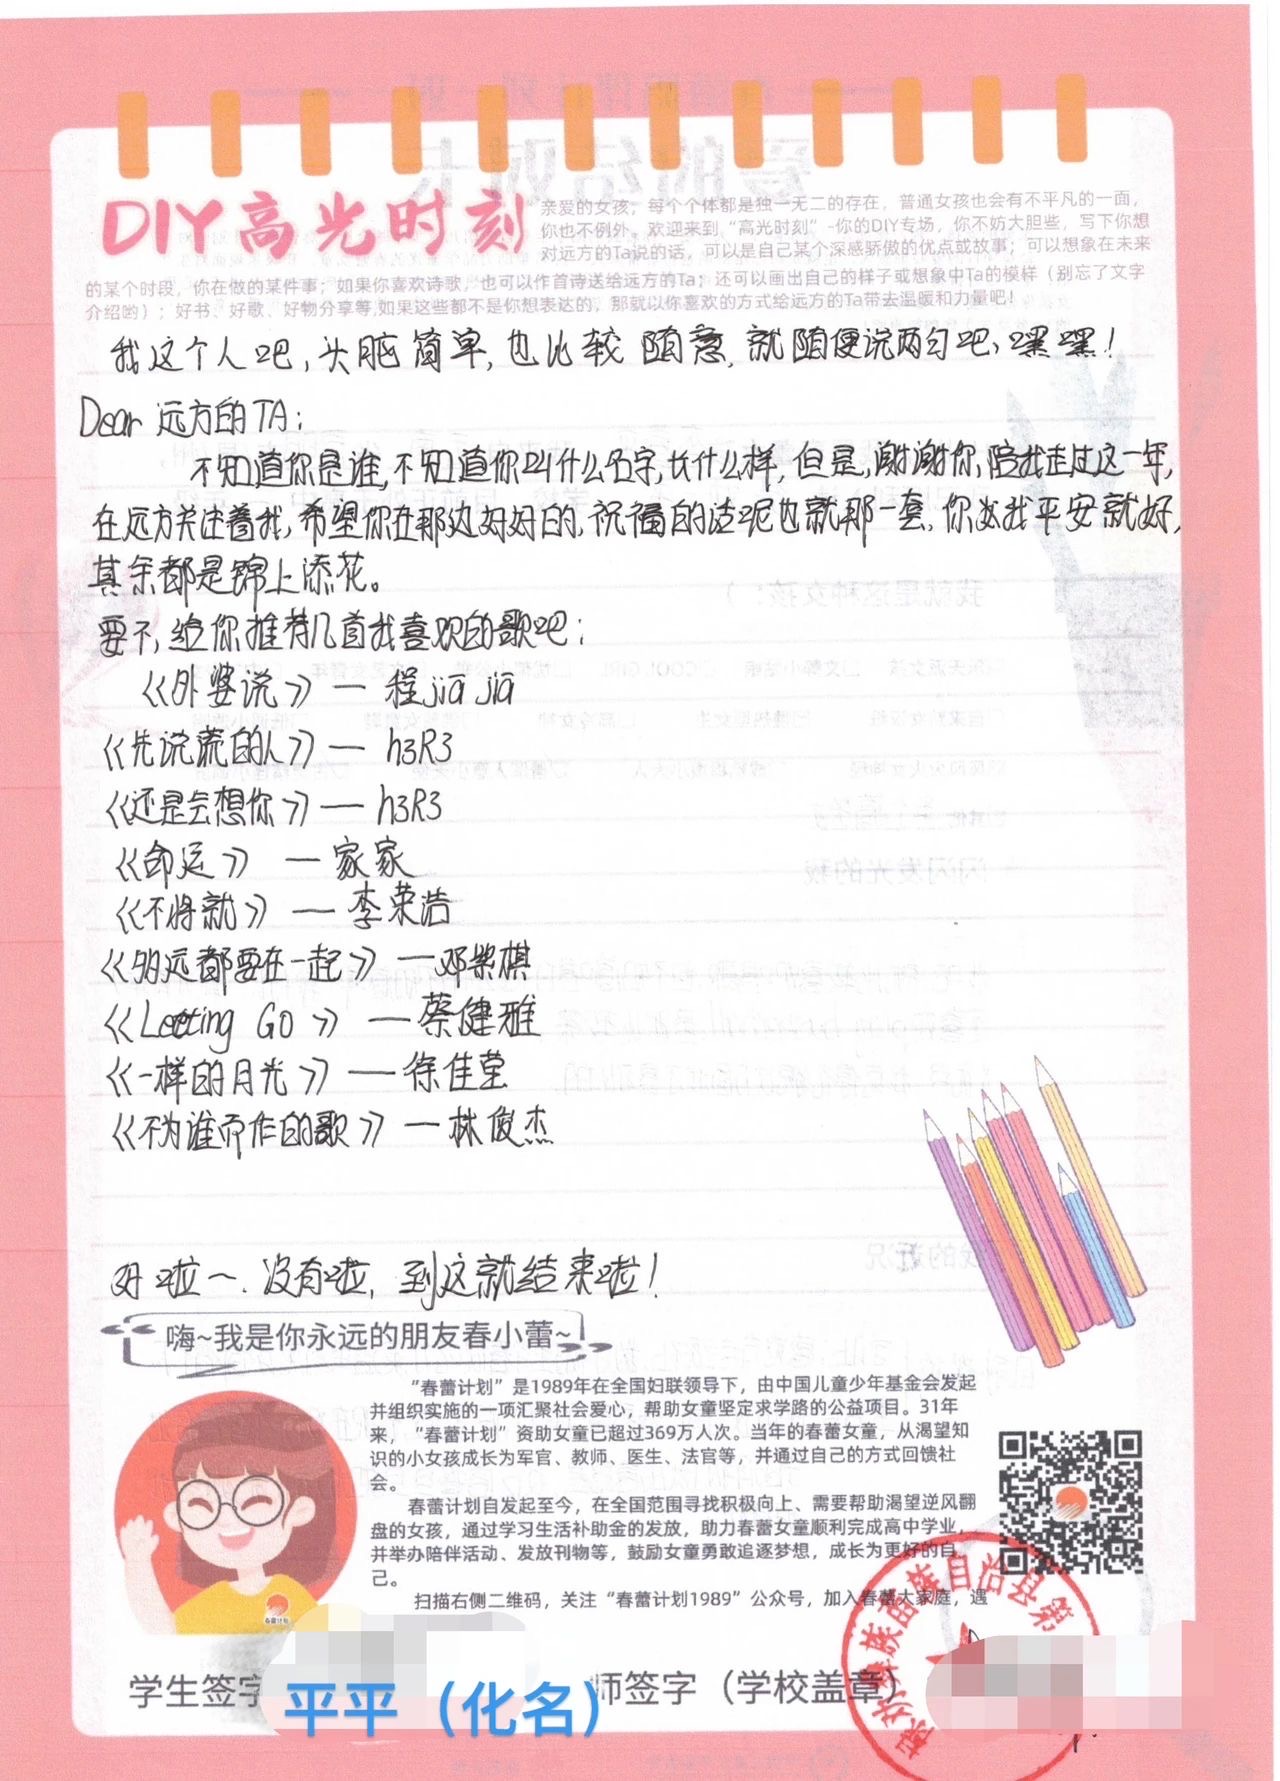 DIY高光时刻
亲爱的女孩，每个个体都是独一无二的存在，普通女孩也会有不平凡的一面，
你也不例外。欢迎来到“高光时刻”-你的DIY专场，你不妨大胆些，写下你想
对远方的Ta说的话，可以是自己某个深感骄傲的优点或故事；可以想象在未来
的某个时段，你在做的某件事；如果你喜欢诗歌，也可以作首诗送给远方的Ta；还可以画出自己的样子或想象中Ta的模样（别忘了文字
介绍哟）；好书、好歌、好物分享等,如果这些都不是你想表达的，那就以你喜欢的方式给远方的Ta带去温暖和力量吧！
我这个人吧，头脑简单，也比较随意，就随便说两句吧，嘿嘿！
Dear 远方的TA：
不知道你是谁，不知道你叫什么名字，长什么样，但是，谢谢你，陪我走过这一年，
在远方关注着我，希望你在那边好好的，祝福的话呢也就那一套，你我平安就好，
其余都是锦上添花。
要不，给你推荐几首我喜欢的歌吧：
《外婆说》— 程jiā jiā
《先说谎的人》— h3R3
《还是会想你》— h3R3
《命运》 — 家家
《不将就》 — 李荣浩
《多远都要在一起》 — 邓紫棋
《Letting Go》 — 蔡健雅
《一样的月光》 — 徐佳莹
《不为谁而作的歌》 — 林俊杰
好啦～. 没有啦，到这就结束啦！
嗨~我是你永远的朋友春小蕾~
“春蕾计划”是1989年在全国妇联领导下，由中国儿童少年基金会发起
并组织实施的一项汇聚社会爱心，帮助女童坚定求学路的公益项目。31年
来，“春蕾计划”资助女童已超过369万人次。当年的春蕾女童，从渴望知
识的小女孩成长为军官、教师、医生、法官等，并通过自己的方式回馈社
会。
春蕾计划自发起至今，在全国范围寻找积极向上、需要帮助渴望逆风翻
盘的女孩，通过学习生活补助金的发放，助力春蕾女童顺利完成高中学业，
并举办陪伴活动、发放刊物等，鼓励女童勇敢追逐梦想，成长为更好的自
己。
扫描右侧二维码，关注“春蕾计划1989”公众号，加入春蕾大家庭，遇
春蕾计划
彝族苗族自治县第
学生签字
平平（化名）
师签字（学校盖章）